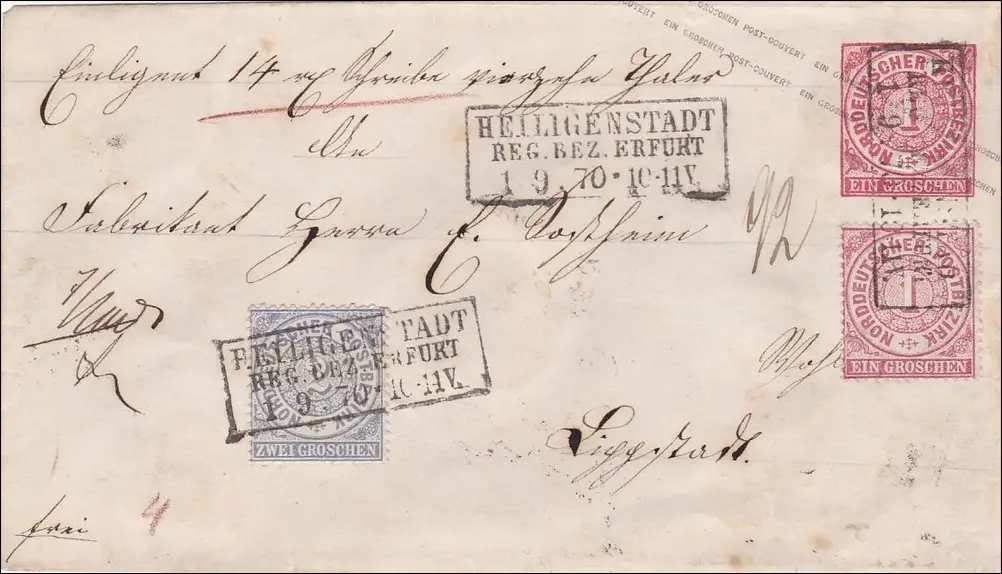 EIN GROSCHEN POST-COUVERT EIN GROSCHEN POST-COUVERT EIN GROSCHEN
Einligent 14 rp Schreibe vierzehn Thaler
An
HEILIGENSTADT
REG. BEZ. ERFURT
1 9 70 * 10-11V.
NORDDEUTSCHER POSTBEZIRK
1
EIN GROSCHEN
Fabrikant Herrn E. Sostheim
92
NORDDEUTSCHER POSTBEZIRK
1
EIN GROSCHEN
HEILIGENSTADT
REG. BEZ. ERFURT
1 9 70 * 10-11V.
ZWEI GROSCHEN
Lippstadt.
4
frei